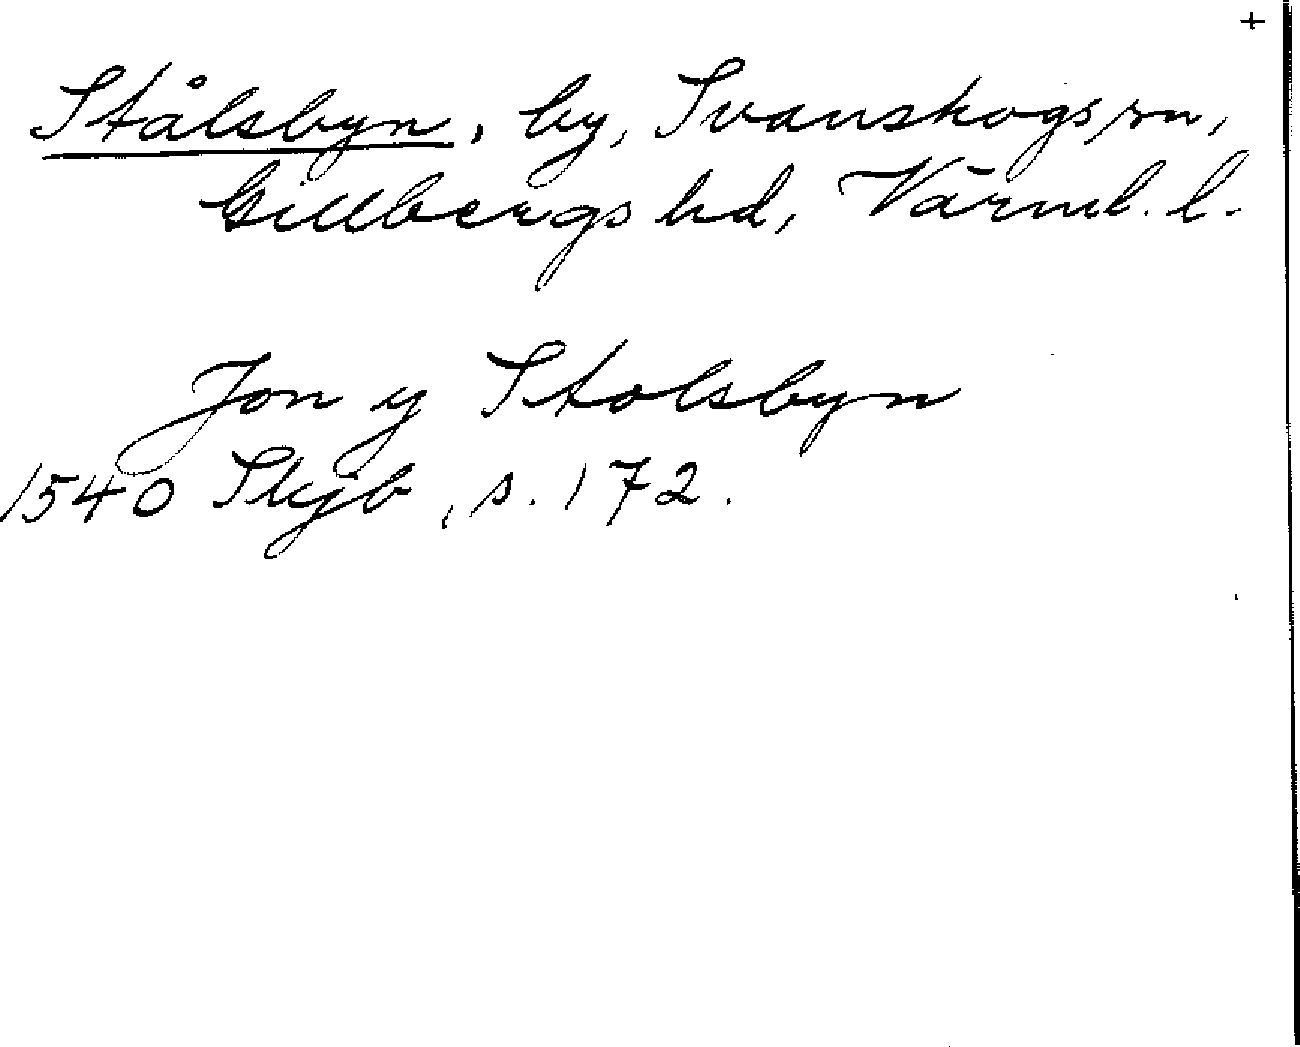 +
Stålsbyn, by, Svanskogs sn,
Gillbergs hd, Värml. l.
Jon y Stolsbyn
1540 Skjb, s. 172.